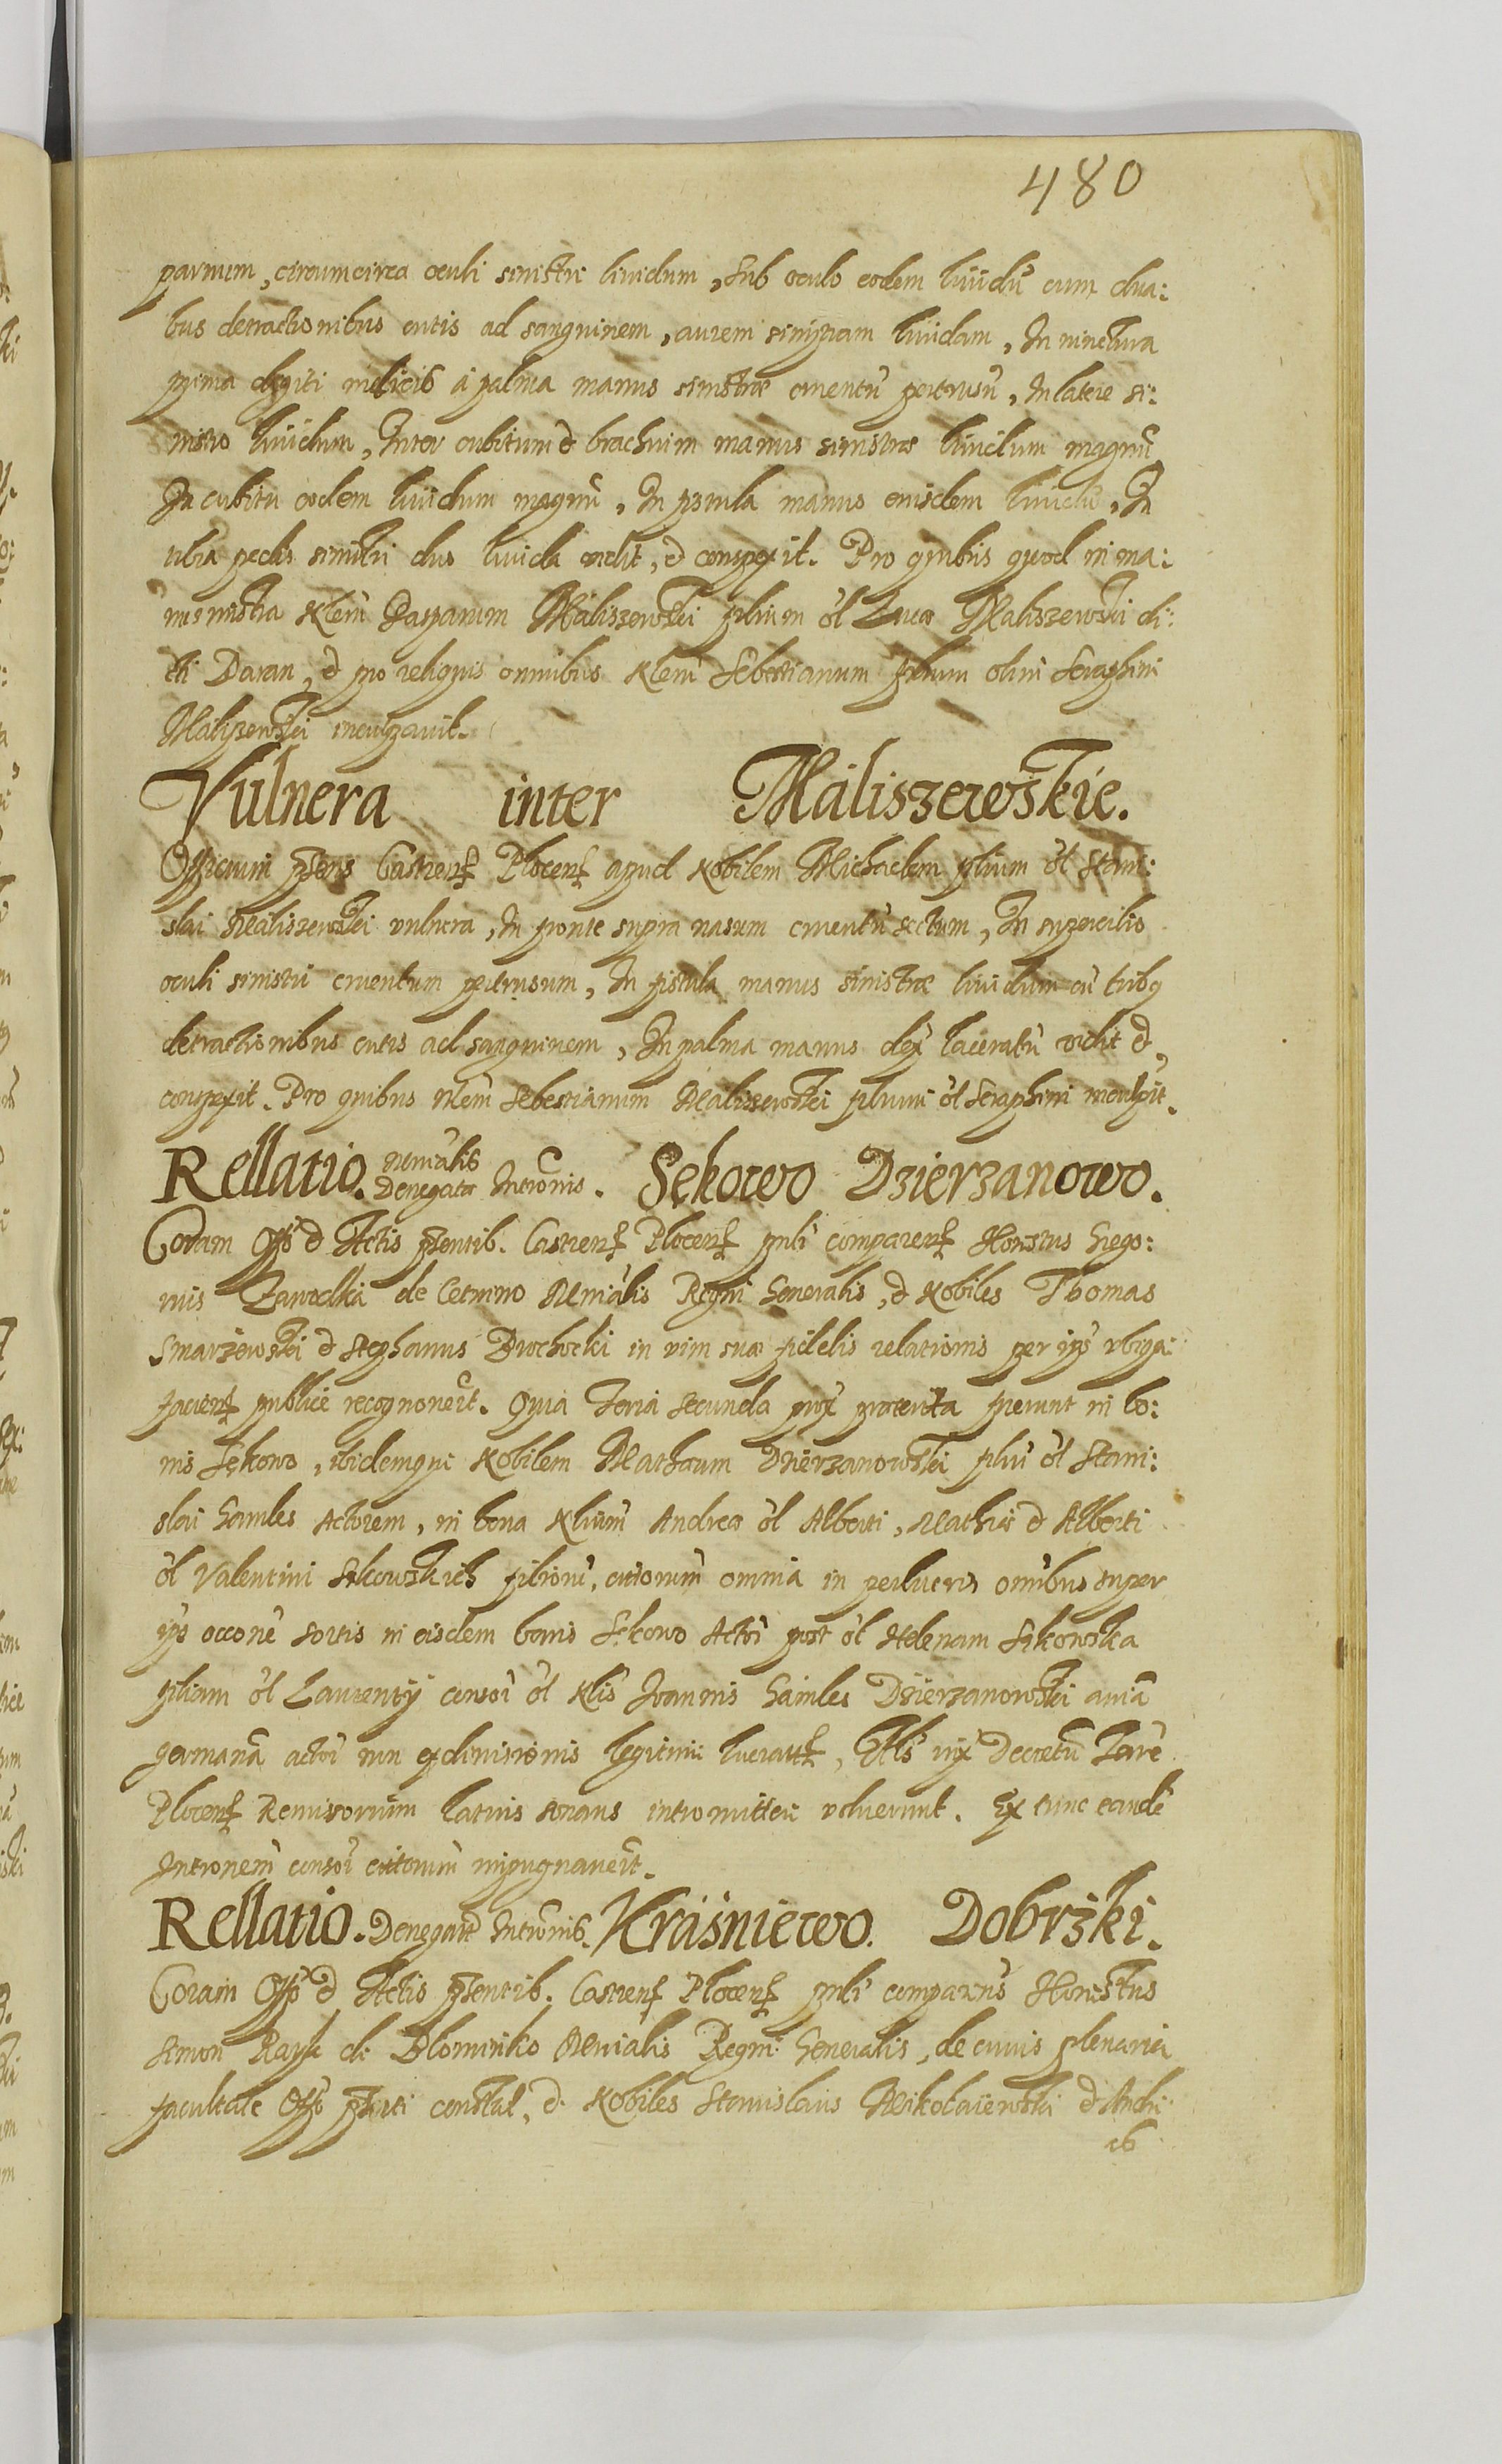 480
parvum, circumcirca oculi sinistri lividum, Sub oculo eodem lividũ cum dua:
bus detractionibus cutis ad sanguinem, aurem sinistram lividam, In iunctura
prima digiti indicis a palma manus sinistræ cruentũ pertusũ, In latere si:
nistro lividum, Inter cubitum et brachium manus sinistræ lividum magnũ
In cubitu eodem lividum magnũ, In pistula manus eiusdem lividũ, In
tibia pedis sinistri duo livida vidit, et conspexit. Pro quibus quod in ma:
nu sinistra Nlem Casparum Maliszewski filium ol Lucæ Maliszewski di:
cti Baran, et pro reliquis omnibus Nlem Sebestianum filium olim Seraphini
Maliszewski inculpavit.
Vulnera inter Maliszewskie.
Officium pñs Castren Plocen apud Nobilem Michaelem filium ol Stani:
slai Maliszewski vulnera, In fronte supra nasum cruentũ sectum, In supercilio
oculi sinistri cruentum pertusum, In pistula manus sinistræ lividum cũ tribq
detractionibus cutis ad sanguinem, In palma manus dex laceratũ vidit et
conspexit. Pro quibus Nlem Sebestianum Maliszewski filium ol Seraphini inculpit.
Rellatio. Mnrialis Denegatæ Intronis. Sękowo Dzierzanowo.
Coram Offo et Actis pñtib. Castren Plocen pnli comparen Honstus Grego:
rius Zawodka de Cetnino Mnrialis Regni Generalis, et Nobiles Thomas
Smarzewski et Stephanus Drochocki in vim suæ fidelis relationis per ips
facien publice recognoverũt. Quia Feria secunda prox præterita fuerunt in bo:
nis Sękowo, ibidemque Nobilem Mathæum Dzierzanowski filiũ ol Stani:
slai Gambes Actorem, in bona Nlium Andreæ ol Alberti, Mathiæ et Alberti
ol Valentini Sękowskich filiorũ, citorum omnia in perlucris omibus super
ips occone sortis in eisdem bonis Sękowo Actori post ol Helenam Sękowska
filiam ol Laurentij consor ol Nlis Joannis Gambes Dzierzanowski aviã
germanã actori non exdivisionis legitimi lucratt, Als iux Decretũ Terre
Plocen Remissorium latius sonans intromittere voluerunt. Ex tunc eandẽ
Intronem consor citorum impugnaverũt.
Rellatio. Denegatæ Intronis. Kraśniewo. Dobrzki.
Coram Offo et Actis pñtib. Castren Plocen pnli comparens Honestus
Simon de Mnrialis Regni Generalis, de cuius plenaria
facultate Offo pñti constat, et Nobiles Stanislaus Mikolaiewski et